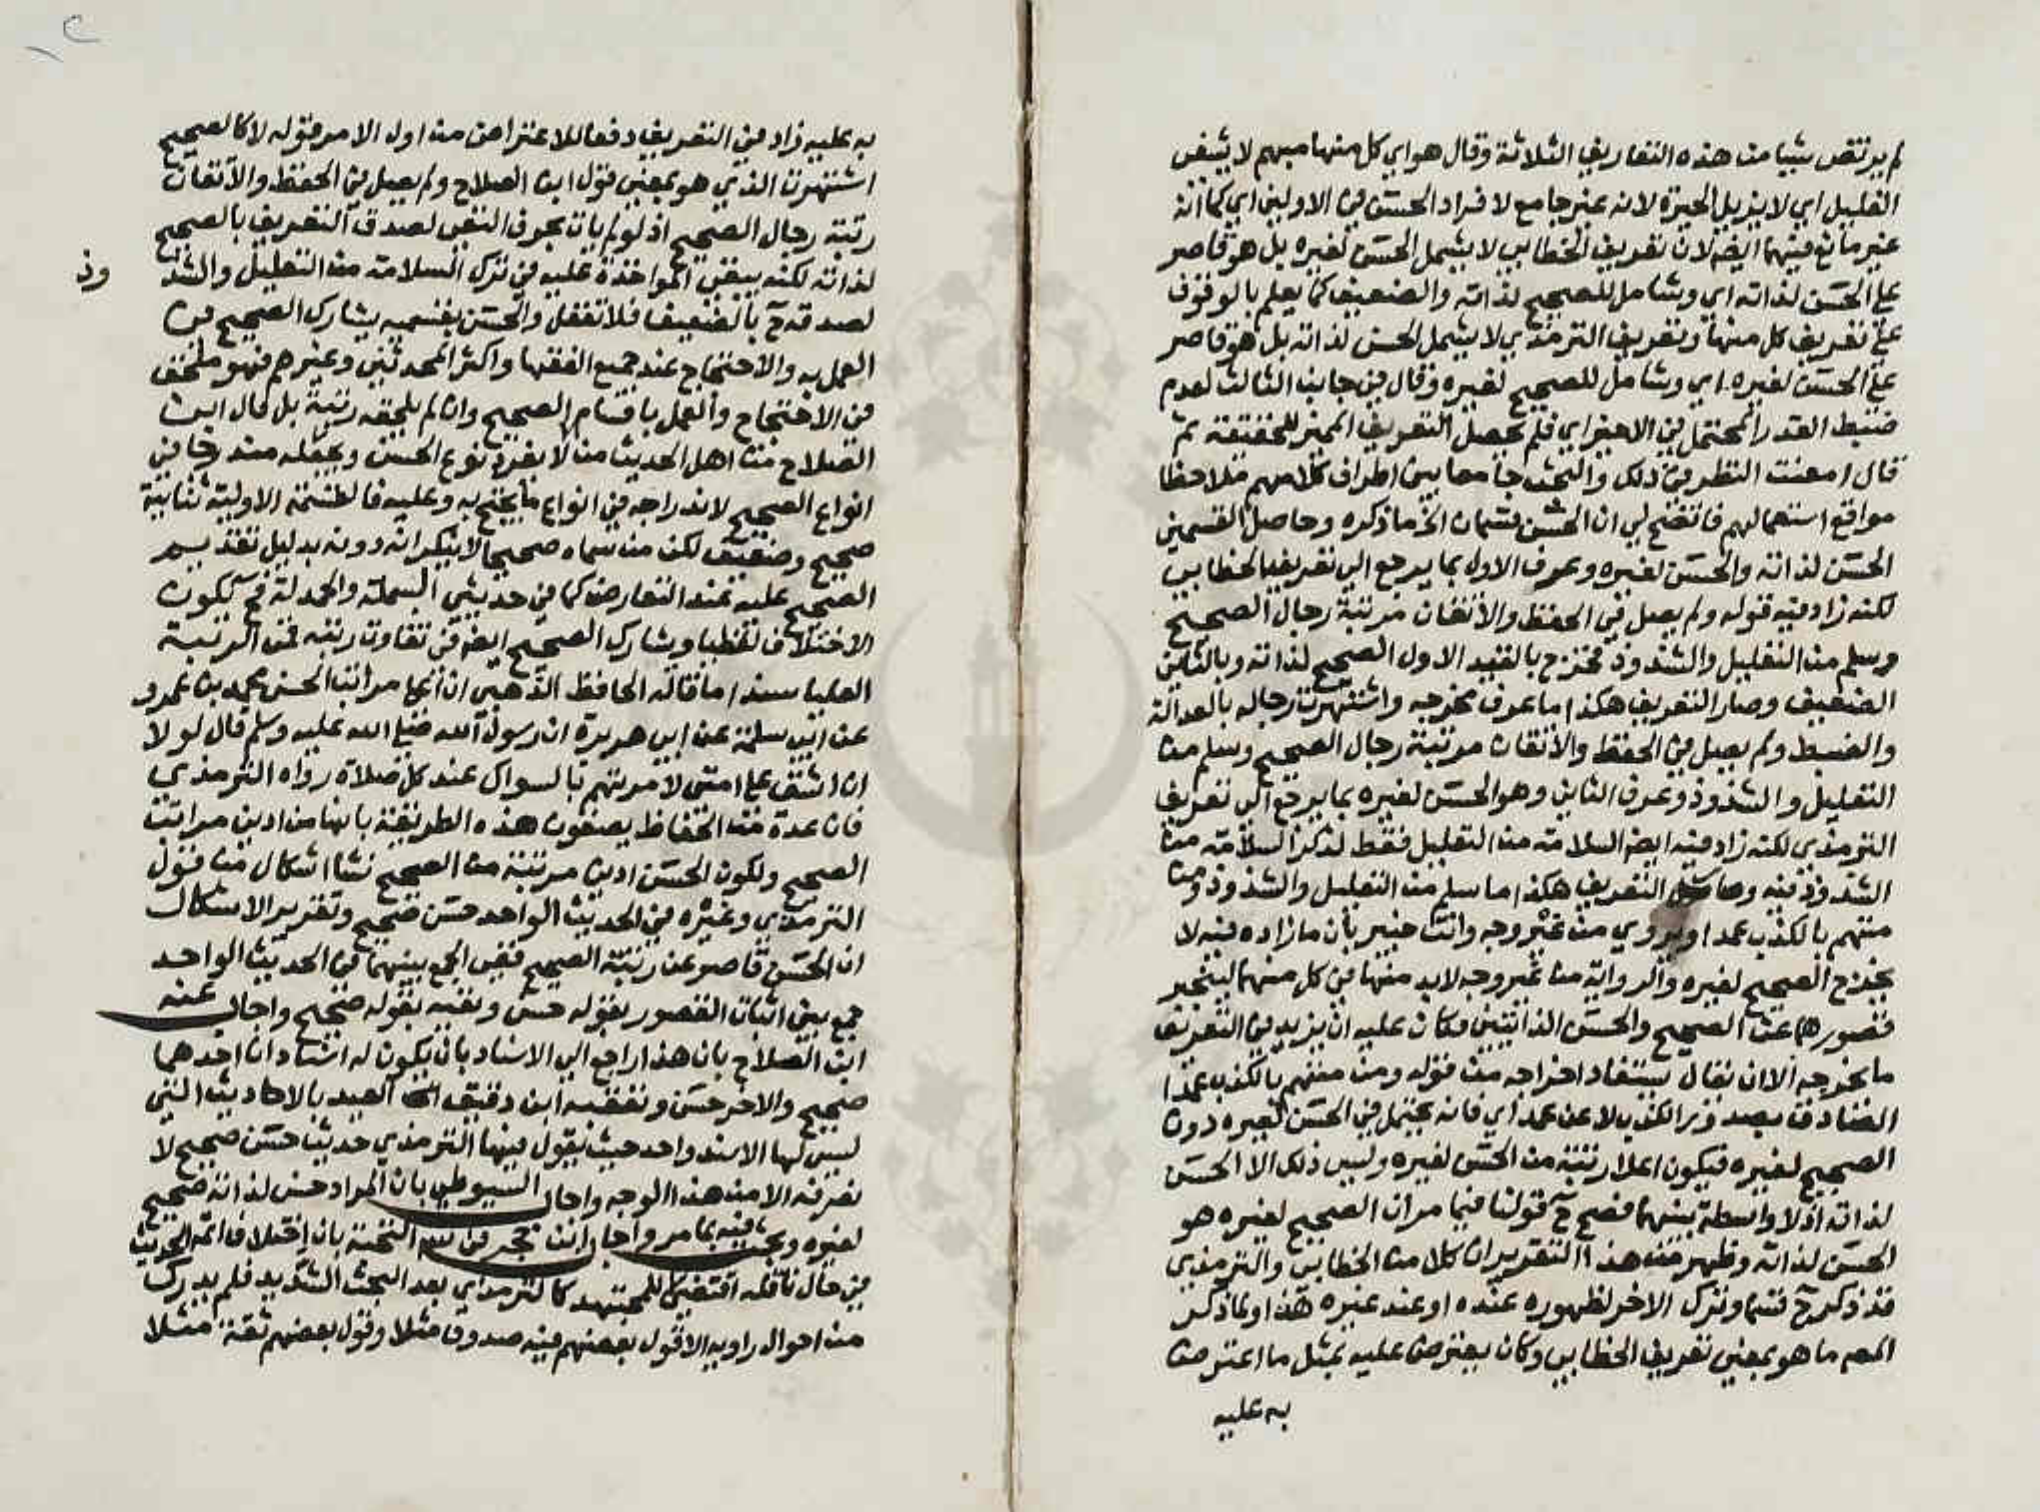 لم يرتض شيا من هذه التعاريف الثلاثة وقال هو اي كل منها مبهم لا يشفي
الغليل اي لا يزيل الحيرة لانه غير جامع لافراد الحسن في الاولين اي كما انه
غير مانع فيهما ايضا لان تعريف الخطابي لا يشمل الحسن لغيره بل هو قاصر
على الحسن لذاته اي وشامل للصحيح لذاته والضعيف كما يعلم بالوقوف
على تعريف كل منها وتعريف الترمذي لا يشمل الحسن لذاته بل هو قاصر
على الحسن لغيره اي وشامل للصحيح لغيره وقال في جانب الثالث لعدم
ضبط القدر المحتمل في الاخير اي فلم يحصل التعريف المميز للحقيقة ثم
قال امعنت النظر في ذلك والبحث جامعا بين اطراف كلامهم ملاحظا
مواقع استعمالهم فاتضح لي ان الحسن قسمان الخ ما ذكره وحاصل القسمين
الحسن لذاته والحسن لغيره وعرف الاول بما يرجع الى تعريف الخطابي
لكنه زاد فيه قوله ولم يصل في الحفظ والاتقان مرتبة رجال الصحيح
وسلم من التعليل والشذوذ فخرج بالقيد الاول الصحيح لذاته وبالثاني
الضعيف وصار التعريف هكذا ما عرف مخرجه واشتهرت رجاله بالعدالة
والضبط ولم يصل في الحفظ والاتقان مرتبة رجال الصحيح وسلم من
التعليل والشذوذ وعرف الثاني وهو الحسن لغيره بما يرجع الى تعريف
الترمذي لكنه زاد فيه ايضا السلامة من التعليل فقط لذكر السلامة من
الشذوذ فيه وحاصل التعريف هكذا ما سلم من التعليل والشذوذ ومن
متهم بالكذب عمدا ويروي من غير وجه وانت خبير بأن ما زاده فيه لا
يخرج الصحيح لغيره والرواية من غير وجه لابد منها في كل منهما لينجبر
قصورهما عن الصحيح والحسن الذاتيين فكان عليه ان يزيد في التعريف
ما يخرجه الا ان يقال يستفاد اخراجه من قوله ومن متهم بالكذب عمدا
الصادق بصدور الكذب لا عن عمد اي فانه يحتمل في الحسن لغيره دون
الصحيح لغيره فيكون اعلا رتبة من الحسن لغيره وليس ذلك الا الحسن
لذاته اذ لا واسطة بينهما فصح ح قولنا فيما مر ان الصحيح لغيره هو
الحسن لذاته وظهر من هذا التقرير ان كلا من الخطابي والترمذي
قد ذكر ح قسما وترك الاخر لظهوره عنده او عند غيره هذا ولما ذكر
المص ما هو بمعنى تعريف الخطابي وكان يعترض عليه بمثل ما اعترض
به عليه
به عليه زاد في التعريف دفعا للاعتراض من اول الامر قوله لا كالصحيح
اشتهرت الذي هو بمعنى قول ابن الصلاح ولم يصل في الحفظ والاتقان
رتبة رجال الصحيح اذ لو لم يات بحرف النفي لصدق التعريف بالصحيح
لذاته لكنه يبقى المواخذة عليه في ترك السلامة من التعليل والشذ
وذ
لصدقه ح بالضعيف فلا تغفل والحسن بقسميه يشارك الصحيح في
العمل به والاحتجاج عند جميع الفقها واكثر المحدثين وغيرهم فهو ملحق
في الاحتجاج والعمل باقسام الصحيح وان لم يلحقه رتبة بل قال ابن
الصلاح من اهل الحديث من لا يفرد نوع الحسن ويجعله مندرجا في
انواع الصحيح لاندراجه في انواع ما يحتج به وعليه فالقسمة الاولية ثنائية
صحيح وضعيف لكن من سماه صحيحا لا ينكر انه دونه بدليل تقديم
الصحيح عليه عند التعارض كما في حديثي البسملة والحمدلة فح يكون
الاختلاف لفظيا ويشارك الصحيح ايضا في تفاوت رتبه فمن المرتبة
العليا سندا ما قاله الحافظ الذهبي ان اعلا مراتب الحسن محمد بن عمرو
عن ابي سلمة عن ابي هريرة ان رسول الله صلى الله عليه وسلم قال لولا
ان اشق على امتي لامرتهم بالسواك عند كل صلاة رواه الترمذي
فان عدة من الحفاظ يصفون هذه الطريقة بانها من ادنى مراتب
الصحيح ولكون الحسن ادنى مرتبة من الصحيح نشا اشكال من قول
الترمذي وغيره في الحديث الواحد حسن صحيح وتقرير الاشكال
ان الحسن قاصر عن رتبة الصحيح ففي الجمع بينهما في الحديث الواحد
جمع بين اثبات القصور بقوله حسن ونفيه بقوله صحيح واجاب عنه
ابن الصلاح بان هذا راجع الى الاسناد بان يكون له اسنادان احدهما
صحيح والاخر حسن وتعقبه ابن دقيق العيد بالاحاديث التي
ليس لها الا سند واحد حيث يقول فيها الترمذي حديث حسن صحيح لا
نعرفه الا من هذا الوجه واجاب السيوطي بان المراد حسن لذاته صحيح
لغيره وبحث فيه بما مر واجاب ابن حجر في النخبة بان اختلاف ائمة الحديث
في حال ناقله اقتضى للمجتهد كالترمذي بعد البحث الشديد فلم يدرك
من احوال راويه الا قول بعضهم فيه صدوق مثلا وقول بعضهم ثقة مثلا